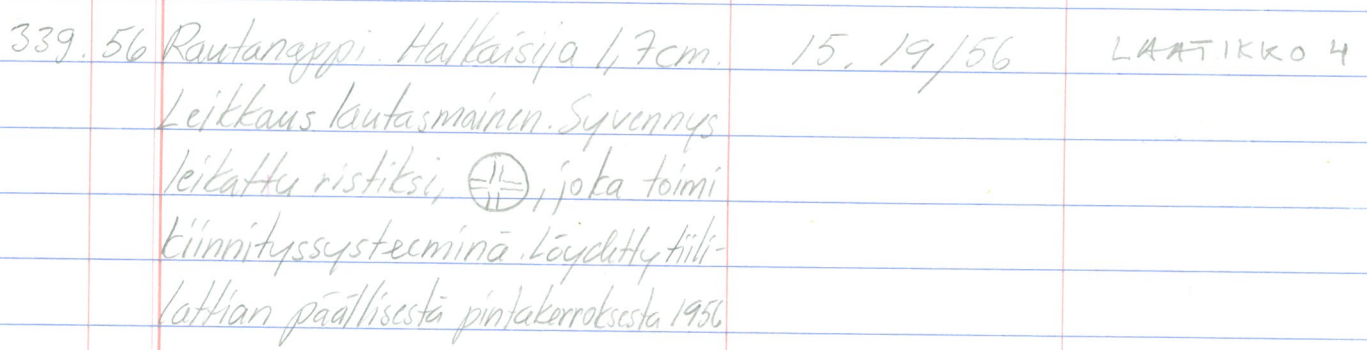 339. 56 Rautanappi. Halkaisija 1,7cm. 15. 19/56 LAATIKKO 4
Leikkaus lautasmainen. Syvennys
leikattu ristiksi, , joka toimi
kiinnityssysteeminä. Löydetty tiili-
lattian päällisestä pintakerroksesta 1956